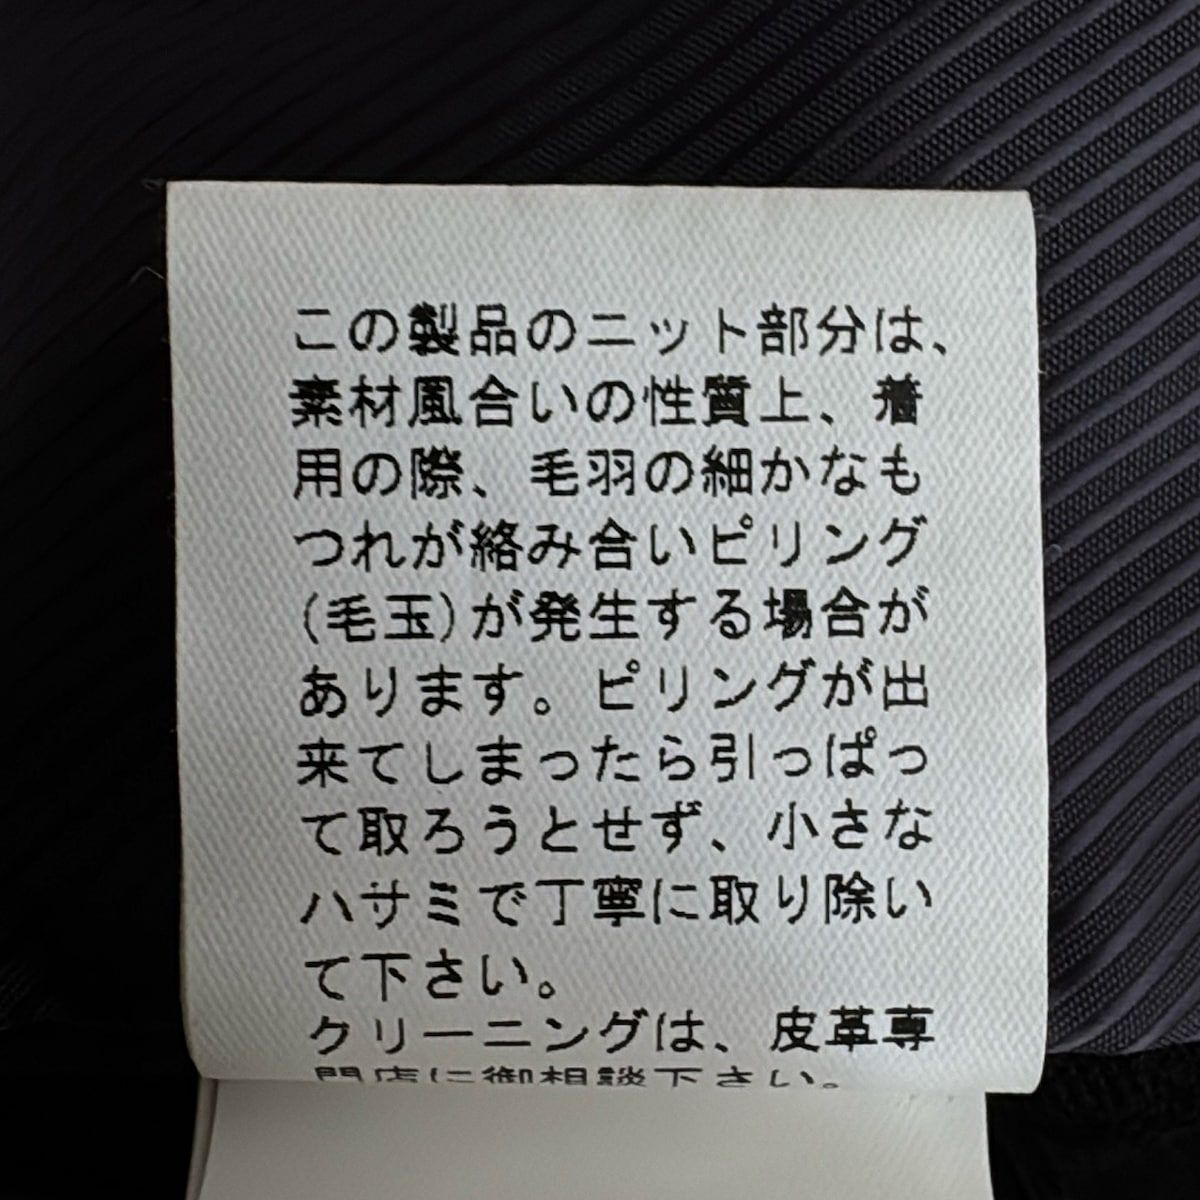 この製品のニット部分は、
素材風合いの性質上、着
用の際、毛羽の細かなも
つれが絡み合いピリング
(毛玉)が発生する場合が
あります。ピリングが出
来てしまったら引っぱっ
て取ろうとせず、小さな
ハサミで丁寧に取り除い
て下さい。
クリーニングは、皮革専
門店に御相談下さい。